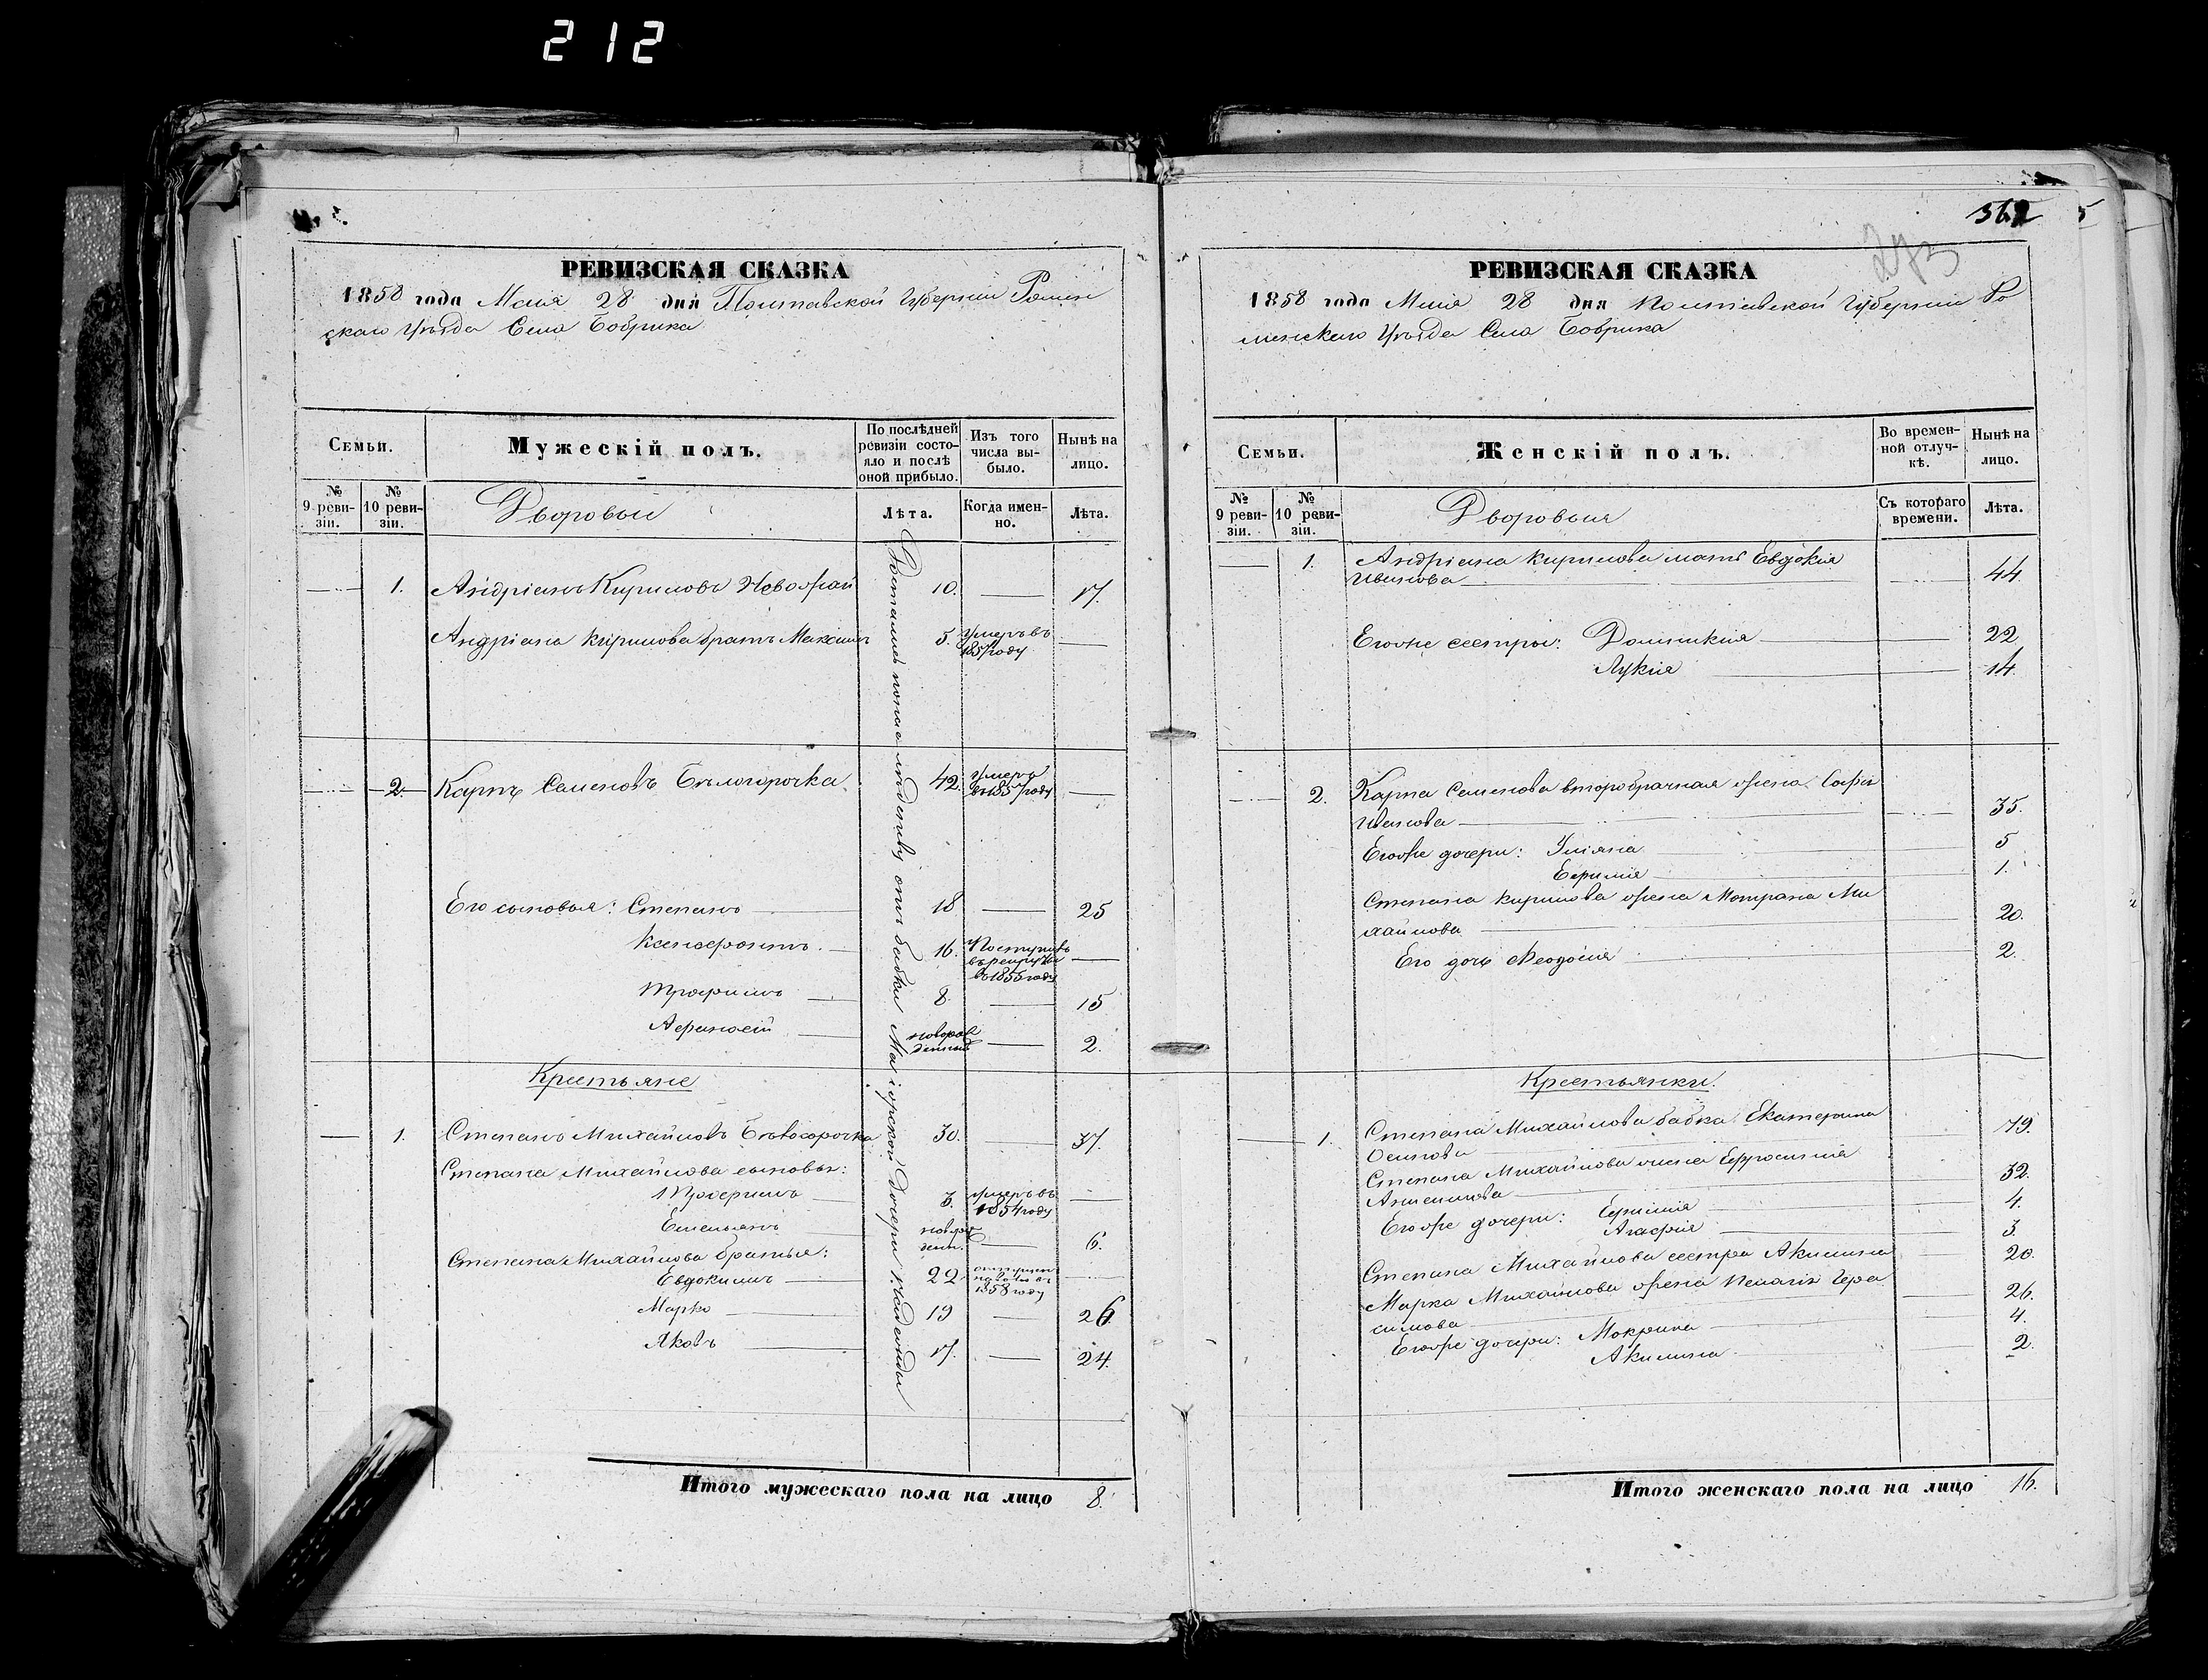 212
РЕВИЗСКАЯ СКАЗКА
1858 года Маия 28 дня Полтавской Губернии Ромен
скаго Уѣзда Села Бобрика
Семьи.
Мужескій полъ.
По послѣдней ревизіи состояло и послѣ оной прибыло.
Изъ того числа выбыло.
Нынѣ на лицо.
№ 9 ревизіи.
№ 10 ревизіи.
Дворовыи
Лѣта.
Когда именно.
Лѣта.
1. Андріанъ Кириловъ 10. — 17.
Андріана Кирилова братъ Максимъ 5. Умеръ въ 1857 году —
2. Карпъ Семеновъ Бѣлогорочка 42. Умеръ въ 1857 году —
Его сыновья: Степанъ 18 — 25
Ксенофонтъ 16. Поступилъ въ рекруты въ 1855 году —
Трофимъ 8. — 15
Афанасій новорожденный — 2.
Крестьяне
1. Степанъ Михайловъ 30. — 37.
Степана Михайлова сыновья:
Трофимъ 3. Умеръ въ 1854 году —
Емельянъ — 6.
Степана Михайлова братья:
Евдокимъ 22. 1858 году
Марко 19 — 26
Яковъ 17. — 24.
Достались по отъ бабки Маіорской дочери
Итого мужескаго пола на лицо 8.
562
273
РЕВИЗСКАЯ СКАЗКА
1858 года Маия 28 дня Полтавской Губернии Ро
менскаго Уѣзда Села Бобрика
Семьи.
Женскій полъ.
Во временной отлучкѣ.
Нынѣ на лицо.
№ 9 ревизіи.
№ 10 ревизіи.
Дворовыя
Съ котораго времени.
Лѣта.
1. Андріана Кирилова мать Евдокія
Иванова 44.
Егоже сестры: Домникія 22
Лукія 14.
2. Карпа Семенова второбрачная жена Софія
Иванова 35.
Егоже дочери: Уліяна 5
Ефимія 1.
Степана Карпова жена Мотрона Ми
хайлова 20.
Его дочь Феодосия 2.
Крестьянки.
1. Степана Михайлова бабка Екатерина
Осипова 79.
Степана Михайлова жена Ефросинія
Анисимова 32.
Егоже дочери: Ефимія 4.
Агафія 3.
Степана Михайлова сестра Акилина 20.
Марка Михайлова жена Пелагія Гера
симова 26.
Егоже дочери: Мокрина 4.
Акилина 2.
Итого женскаго пола на лицо 16.